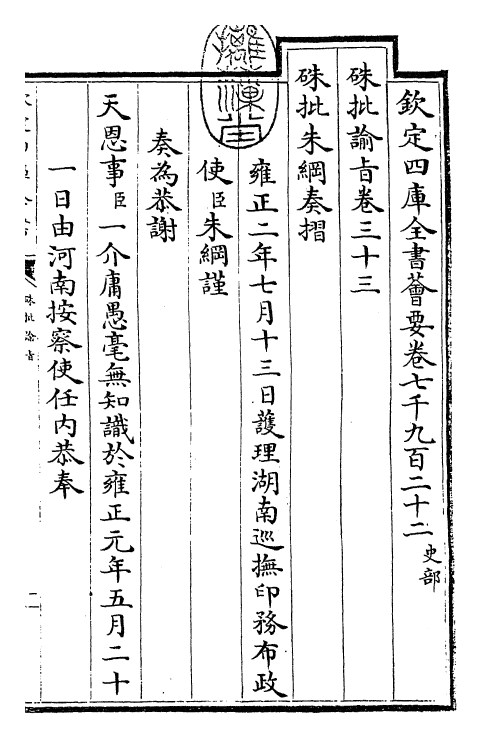 欽定四庫全書薈要卷七千九百二十二 史部
硃批諭旨卷三十三
硃批朱綱奏摺
雍正二年七月十三日護理湖南巡撫印務布政
使臣朱綱謹
奏為恭謝
天恩事臣一介庸愚毫無知識於雍正元年五月二十
一日由河南按察使任内恭奉
硃批諭旨